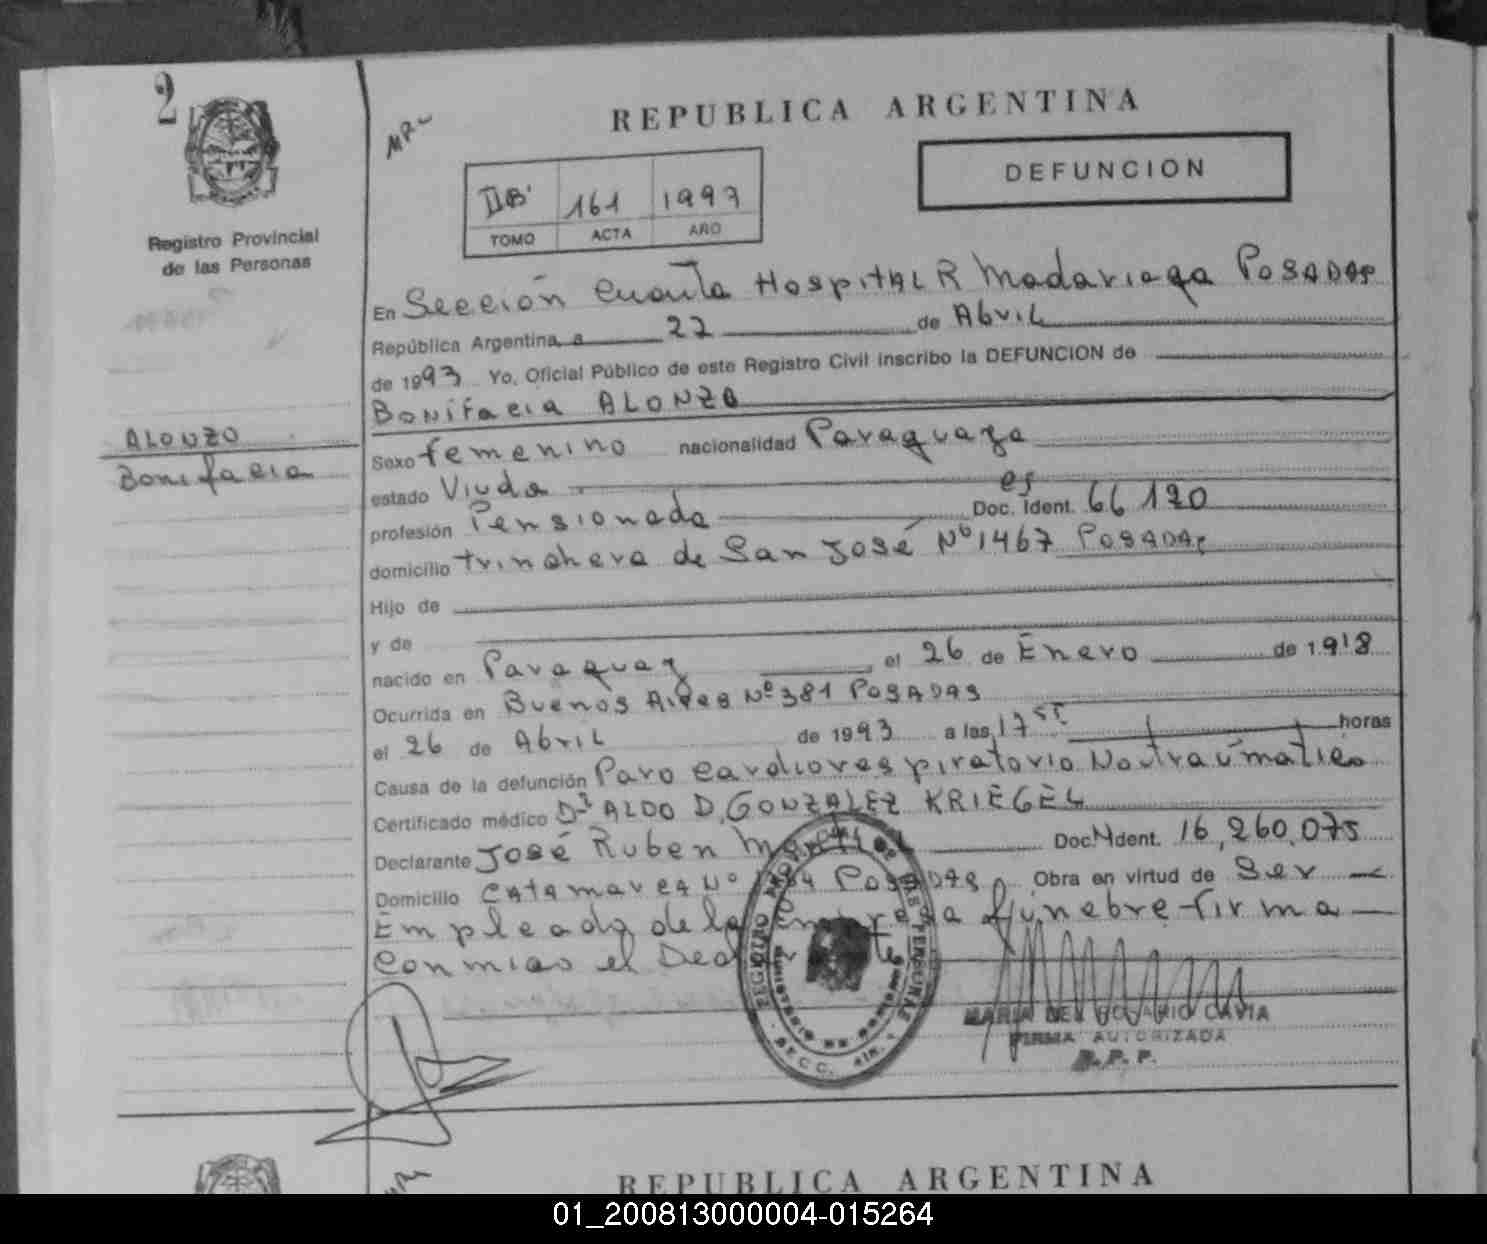 2
MRL
REPUBLICA ARGENTINA
DEFUNCION
IIB' 161 1993
TOMO ACTA AÑO
Registro Provincial
de las Personas
En Sección Cuarta HospitAL R Madariaga POSADAS
República Argentina, a 27 de Abril
de 1993 Yo, Oficial Público de este Registro Civil inscribo la DEFUNCION de
Bonifacia ALONZO
ALONZO
Bonifacia
Sexo femenino nacionalidad Paraguaya
estado Viuda es
profesión Pensionada Doc. Ident. 66120
domicilio trinchera de San José Nº 1467 POSADAS
Hijo de
y de
nacido en Paraguay el 26 de Enero de 1918
Ocurrida en Buenos Aires Nº 381 POSADAS
el 26 de Abril de 1993 a las 17 horas
Causa de la defunción Paro cardiorespiratorio No traumatico
Certificado médico Dr ALDO D. GONZALEZ KRIEGEL
Declarante José Ruben Doc. Ident. 16,260,075
Domicilio CAtamarca Nº POSADAS Obra en virtud de Ser
Empleado de la Empresa fúnebre firma
Conmigo el
REGISTRO PROVINCIAL DE LAS PERSONAS
MINISTERIO DE GOBIERNO
MARIA DEL ROSARIO CAVIA
FIRMA AUTORIZADA
R. P. P.
REPUBLICA ARGENTINA
01_200813000004-015264